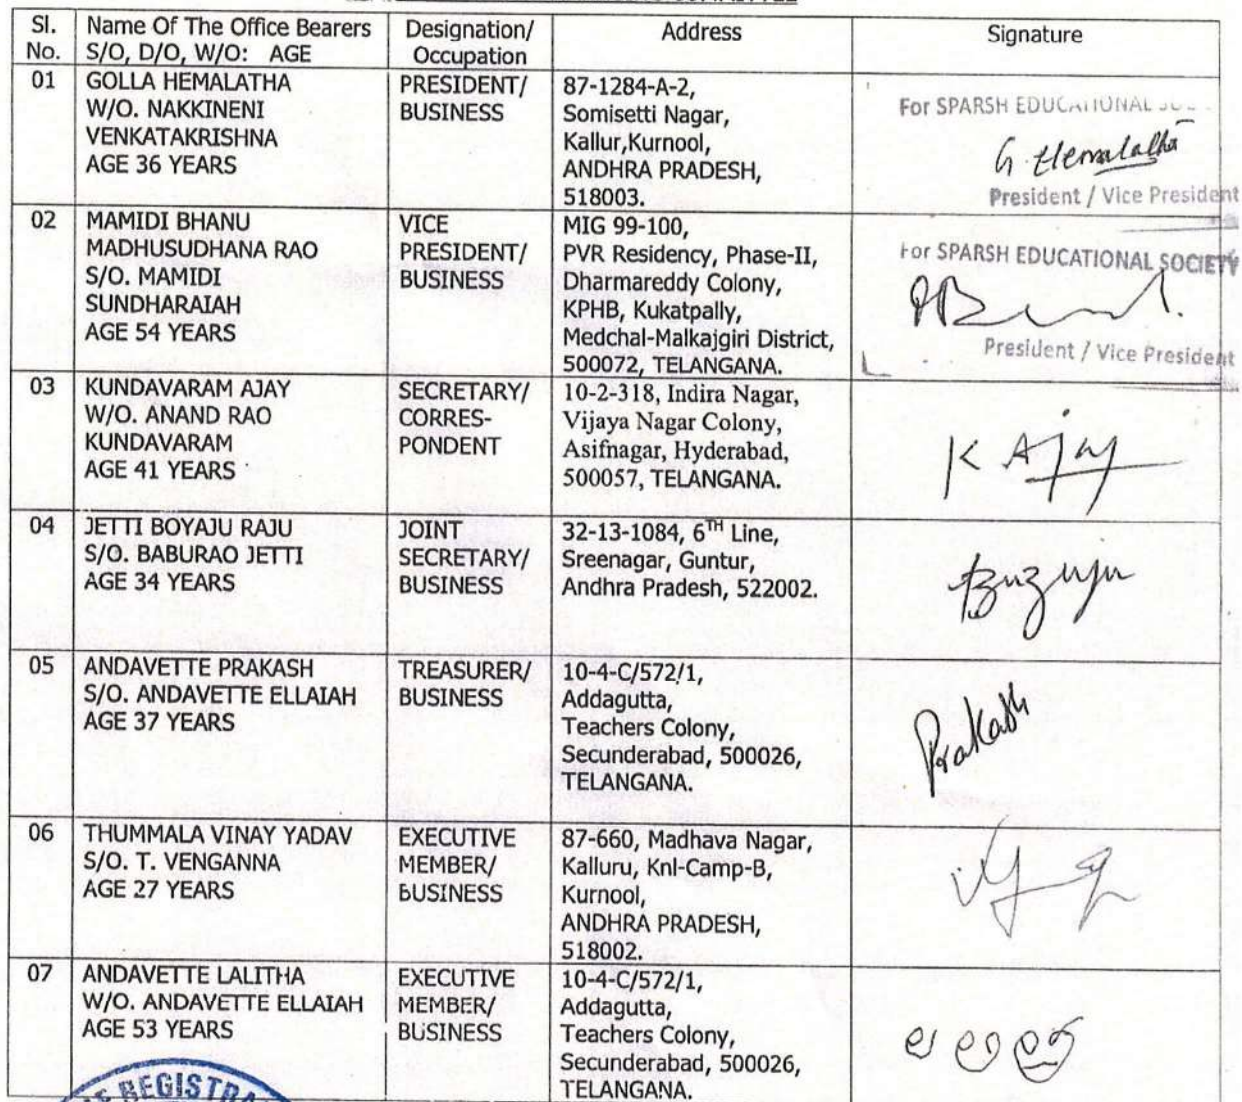 Sl. No. Name Of The Office Bearers S/O, D/O, W/O: AGE Designation/ Occupation Address Signature
01
GOLLA HEMALATHA
W/O. NAKKINENI
VENKATAKRISHNA
AGE 36 YEARS
PRESIDENT/
BUSINESS
87-1284-A-2,
Somisetti Nagar,
Kallur,Kurnool,
ANDHRA PRADESH,
518003.
For SPARSH EDUCATIONAL
G. Hemalatha
President / Vice President
02
MAMIDI BHANU
MADHUSUDHANA RAO
S/O. MAMIDI
SUNDHARAIAH
AGE 54 YEARS
VICE
PRESIDENT/
BUSINESS
MIG 99-100,
PVR Residency, Phase-II,
Dharmareddy Colony,
KPHB, Kukatpally,
Medchal-Malkajgiri District,
500072, TELANGANA.
For SPARSH EDUCATIONAL SOCIETY
President / Vice President
03
KUNDAVARAM AJAY
W/O. ANAND RAO
KUNDAVARAM
AGE 41 YEARS
SECRETARY/
CORRES-
PONDENT
10-2-318, Indira Nagar,
Vijaya Nagar Colony,
Asifnagar, Hyderabad,
500057, TELANGANA.
K Ajay
04
JETTI BOYAJU RAJU
S/O. BABURAO JETTI
AGE 34 YEARS
JOINT
SECRETARY/
BUSINESS
32-13-1084, 6TH Line,
Sreenagar, Guntur,
Andhra Pradesh, 522002.
05
ANDAVETTE PRAKASH
S/O. ANDAVETTE ELLAIAH
AGE 37 YEARS
TREASURER/
BUSINESS
10-4-C/572/1,
Addagutta,
Teachers Colony,
Secunderabad, 500026,
TELANGANA.
Prakash
06
THUMMALA VINAY YADAV
S/O. T. VENGANNA
AGE 27 YEARS
EXECUTIVE
MEMBER/
BUSINESS
87-660, Madhava Nagar,
Kalluru, Knl-Camp-B,
Kurnool,
ANDHRA PRADESH,
518002.
07
ANDAVETTE LALITHA
W/O. ANDAVETTE ELLAIAH
AGE 53 YEARS
EXECUTIVE
MEMBER/
BUSINESS
10-4-C/572/1,
Addagutta,
Teachers Colony,
Secunderabad, 500026,
TELANGANA.